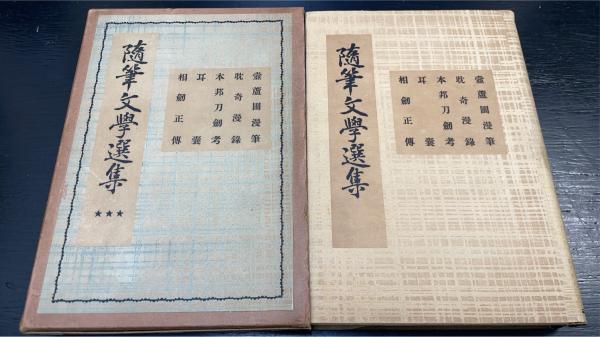 隨筆文學選集
★★★
壺蘆圃漫筆
耽奇漫錄
本邦刀劒考
耳囊
相劒正傳
隨筆文學選集
壺蘆圃漫筆
耽奇漫錄
本邦刀劒考
耳囊
相劒正傳